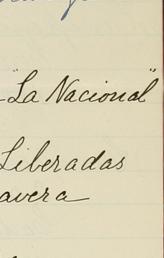 "La Nacional"
Liberadas
avera